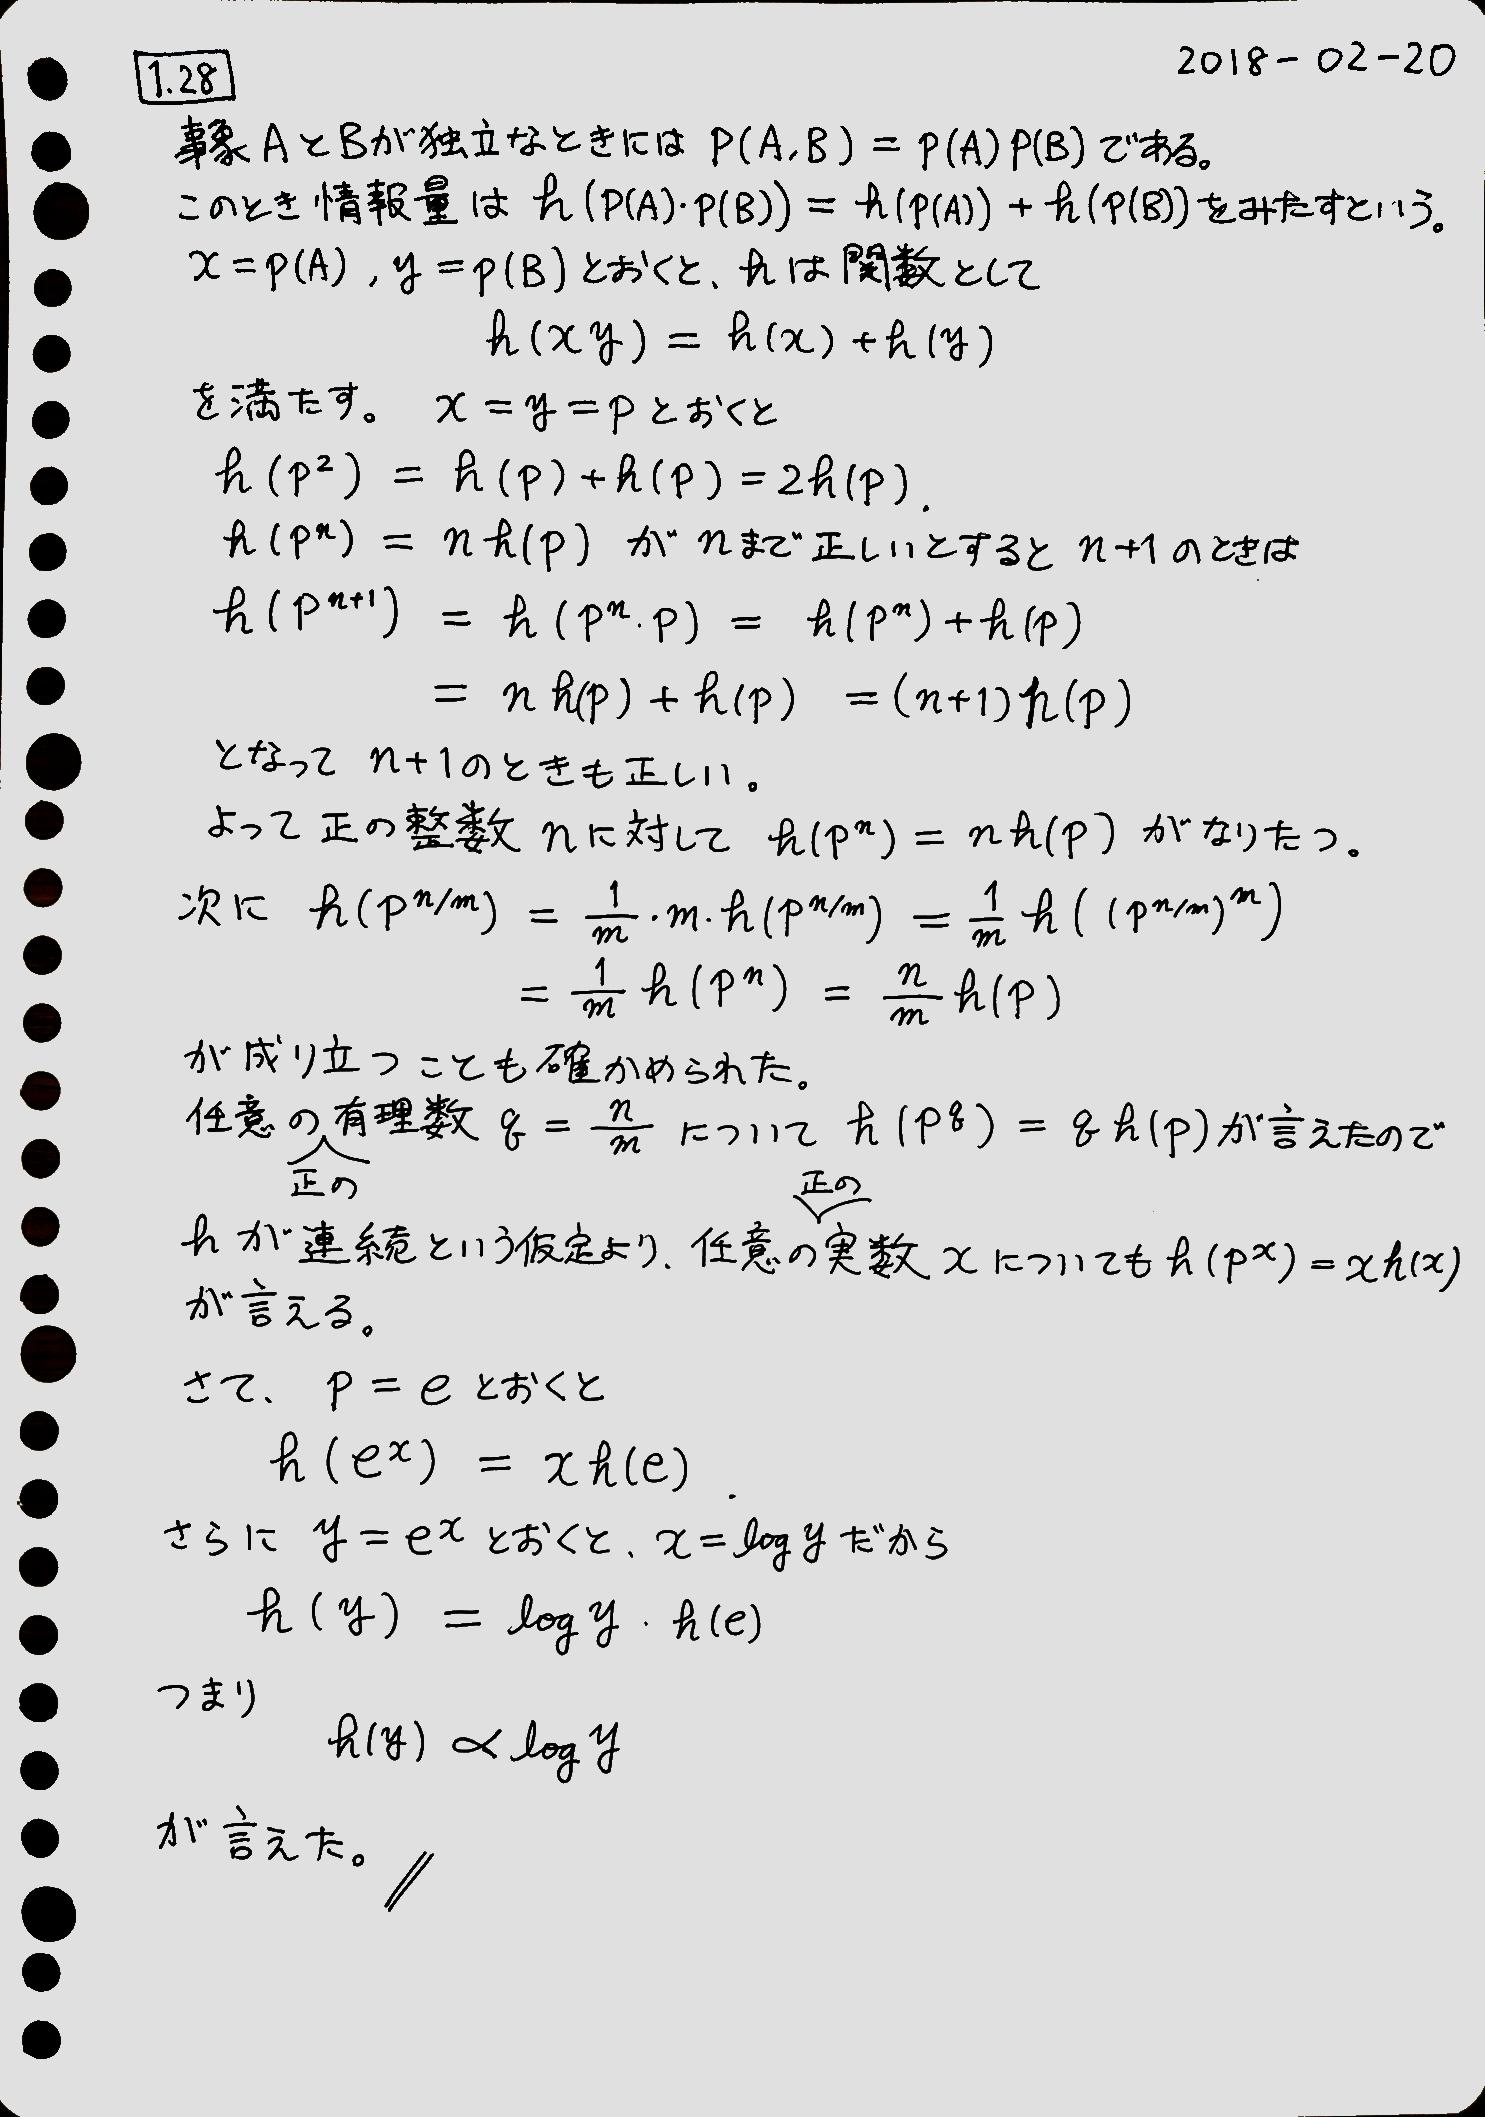 1.28 2018-02-20
事象AとBが独立なときには P(A,B) = P(A)P(B)である。
このとき情報量は h(P(A)・P(B)) = h(P(A)) + h(P(B))をみたすという。
x=p(A), y=p(B)とおくと、hは関数として
h(xy) = h(x)+h(y)
を満たす。 x=y=pとおくと
h(p²) = h(p)+h(p)=2h(p).
h(pⁿ) = nh(p) がnまで正しいとするとn+1のときは
h(pⁿ⁺¹) = h(pⁿ・p) = h(pⁿ)+h(p)
= nh(p)+h(p) =(n+1)h(p)
となって n+1のときも正しい。
よって正の整数nに対して h(pⁿ) = nh(p) がなりたつ。
次に h(p^{n/m}) = 1/m・m・h(p^{n/m}) = 1/m h((p^{n/m})^m)
= 1/m h(pⁿ) = n/m h(p)
が成り立つことも確かめられた。
任意の正の有理数 q = n/m について h(p^q) = qh(p)が言えたので
hが連続という仮定より、任意の正の実数xについてもh(p^x)=xh(x)
が言える。
さて、 p=eとおくと
h(e^x) = xh(e).
さらに y=e^xとおくと、x=log yだから
h(y) = log y・h(e)
つまり
h(y) ∝ log y
が言えた。//